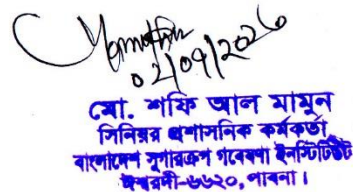 02/09/2026
মো. শফি আল মামুন
সিনিয়র প্রশাসনিক কর্মকর্তা
বাংলাদেশ সুগারক্রপ গবেষণা ইনস্টিটিউট
ঈশ্বরদী-৬৬২০, পাবনা।